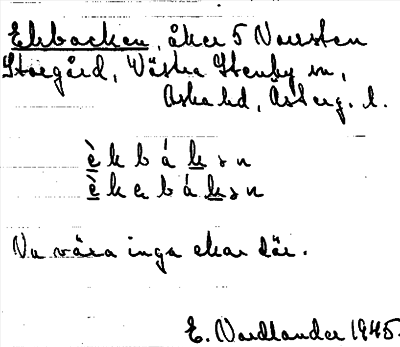 Ekbacken, åker 5 Norrsten
Storegård, Västra Stenby sn,
Aska hd, Österg. l.
è k b á k ə n
è k e b á k ə n
Nu växa inga ekar där.
E. Nordlander 1945.